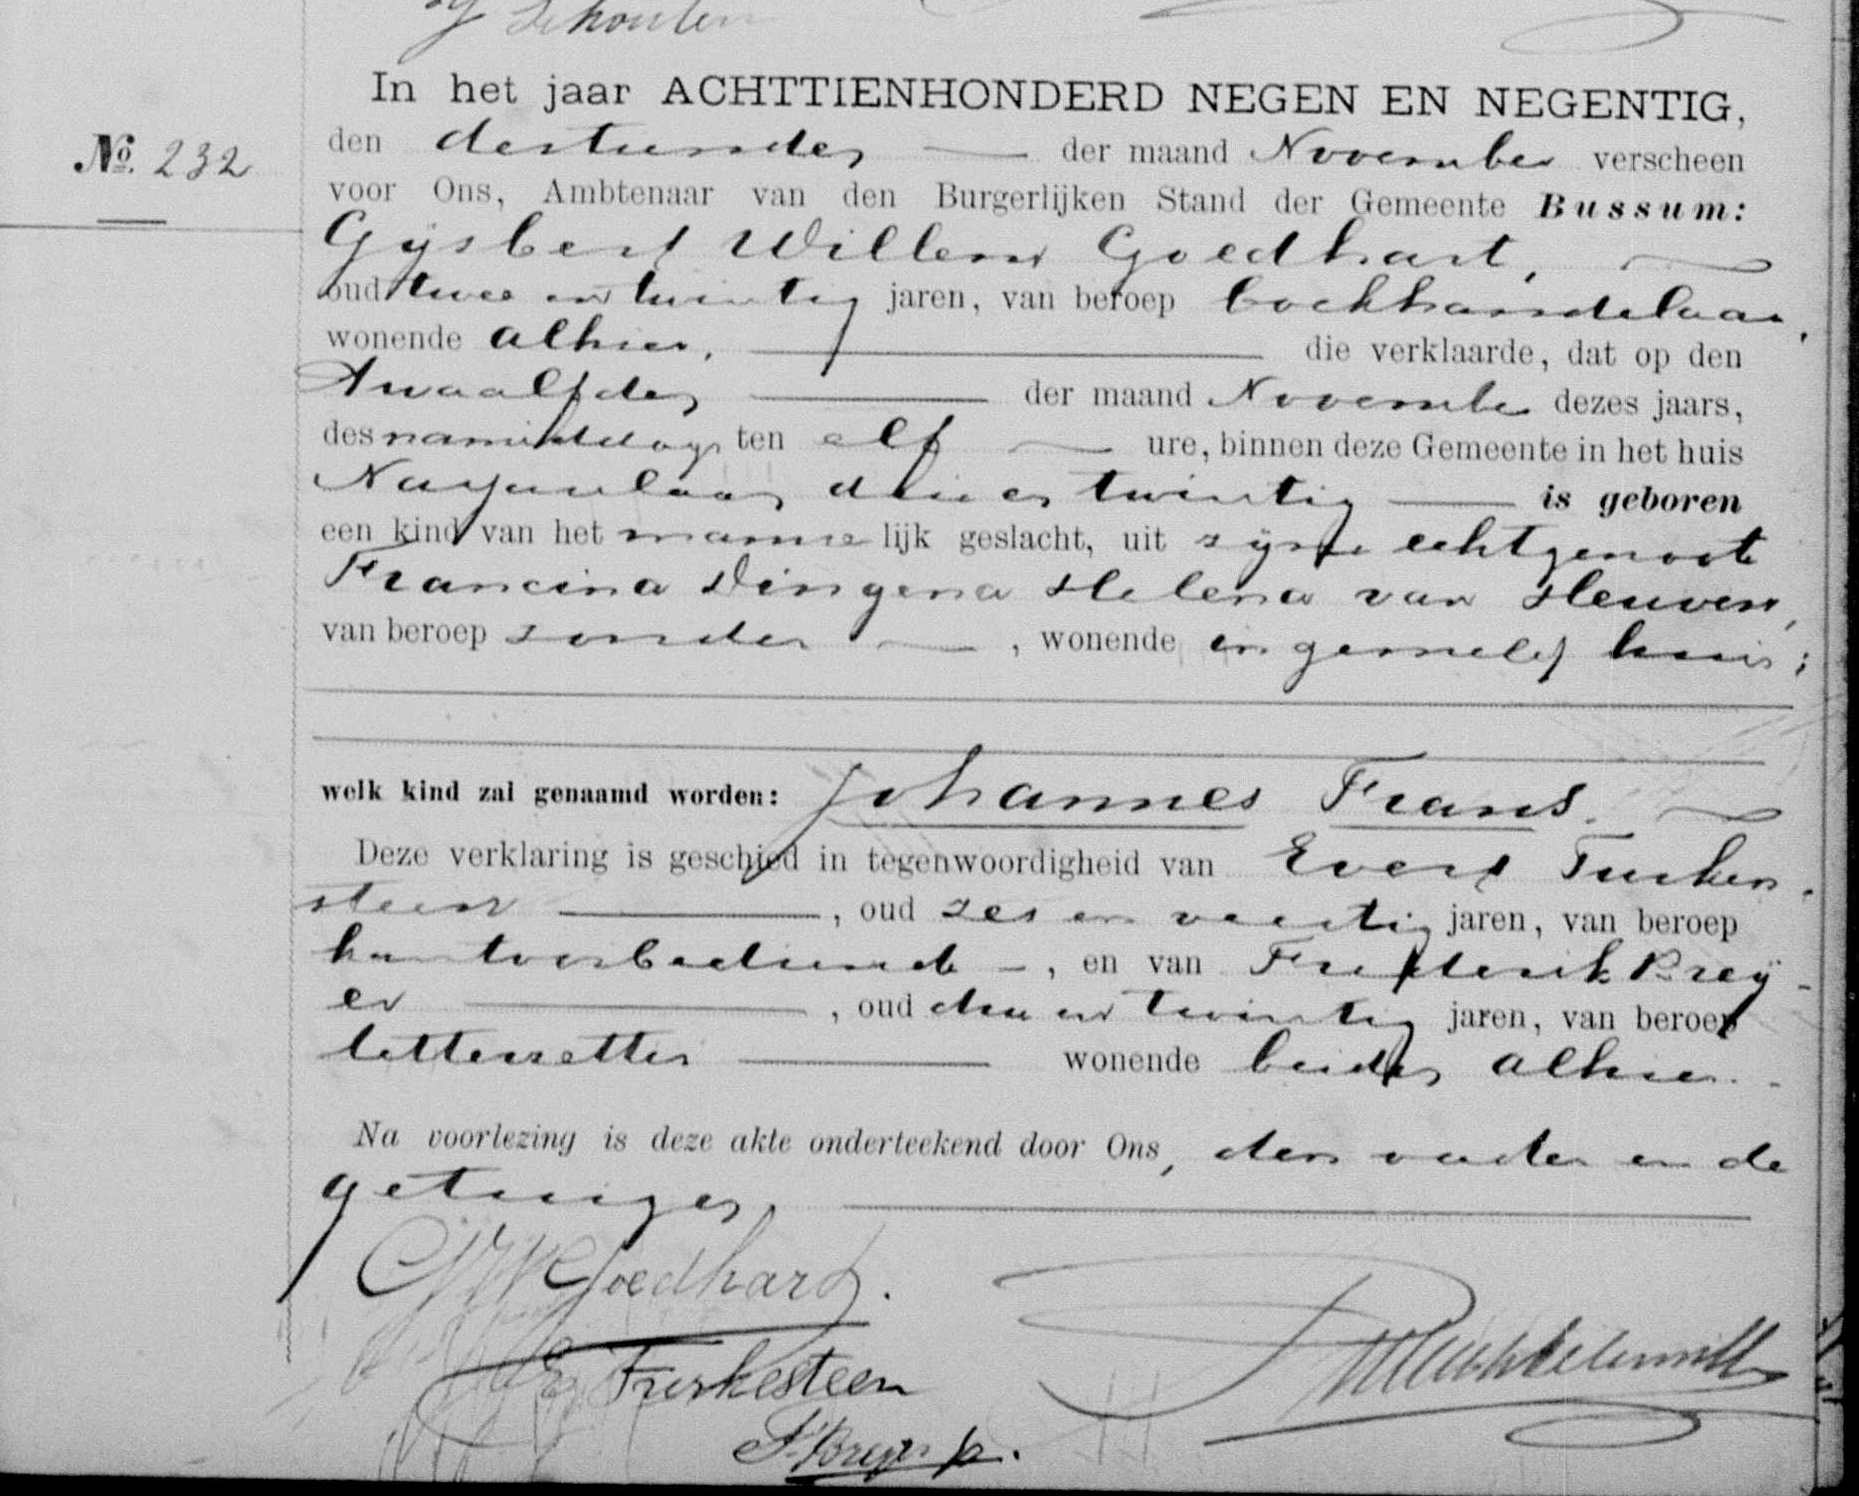 Schouten
In het jaar ACHTTIENHONDERD NEGEN EN NEGENTIG,
No. 232
den dertienden der maand November verscheen
voor Ons, Ambtenaar van den Burgerlijken Stand der Gemeente Bussum:
Gijsbert Willem Goedhart,
oud twee en twintig jaren, van beroep boekhandelaar,
wonende alhier, die verklaarde, dat op den
twaalfden der maand November dezes jaars,
des namiddags ten elf ure, binnen deze Gemeente in het huis
drie en twintig is geboren
een kind van het mannelijk geslacht, uit zijne echtgenoote
Francina Dingena Helena van Heuven,
van beroep zonder, wonende in gemeld huis;
welk kind zal genaamd worden: Johannes Frans.
Deze verklaring is geschied in tegenwoordigheid van Evert Turken-
steen, oud zes en veertig jaren, van beroep
kantoorbediende, en van Frederik Breij-
er, oud drie en twintig jaren, van beroep
letterzetter wonende beiden alhier.
Na voorlezing is deze akte onderteekend door Ons, den vader en de
getuigen.
GW Goedhart.
E. Turkesteen
F. Breijer jr.